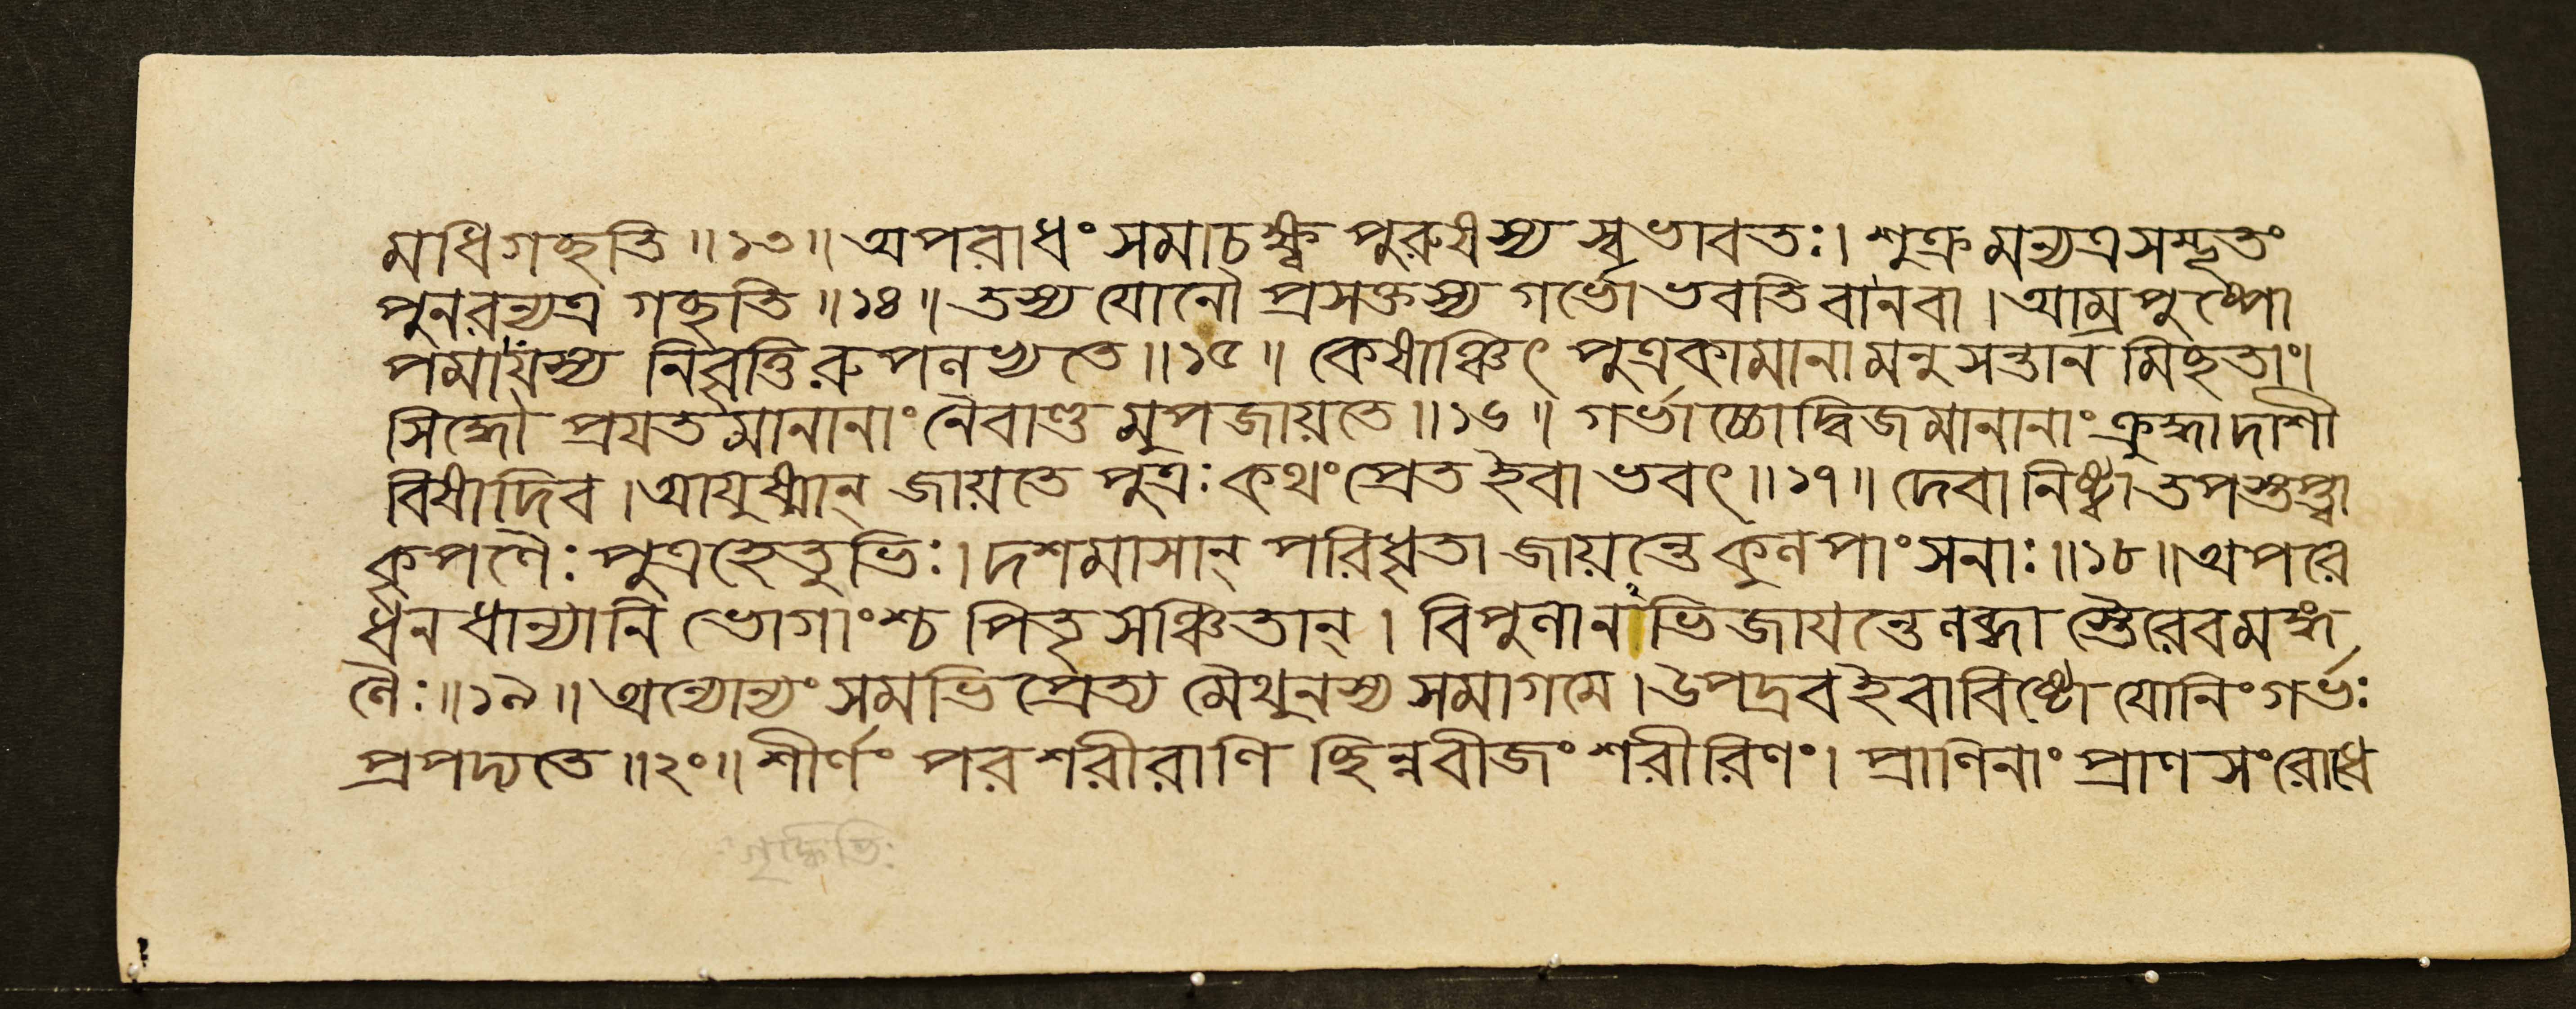 মধিগচ্ছতি ॥ ১৩ ॥ অপরাধং সমাচক্ষ্ব পুরুষস্য স্বভাবতঃ । শুক্রমন্যত্রসম্ভূতং
পুনরন্যত্র গচ্ছতি ॥ ১৪ ॥ তস্য যোনৌ প্রসক্তস্য গর্ভো ভবতি বা নবা । আম্রপুষ্পো
পমায়স্য নিবৃত্তিরুপলভ্যতে ॥ ১৫ ॥ কেষাঞ্চিৎ পুত্রকামানামনুসন্তানমিচ্ছতাং ।
সিদ্ধৌ প্রযতমানানাং নৈবাণ্ডমুপজায়তে ॥ ১৬ ॥ গর্ভাচ্চোদ্বিজমানানাং ক্রুদ্ধাদাশী
বিষাদিব । আয়ুষ্মান্ জায়তে পুত্রঃ কথং প্রেত ইবা ভবৎ ॥ ১৭ ॥ দেবানিষ্ট্বা তপস্তপ্ত্বা
কৃপণৈঃ পুত্রহেতুভিঃ । দশমাসান্ পরিধৃতা জায়ন্তে কুলপাংসনাঃ ॥ ১৮ ॥ অপরে
ধনধান্যানি ভোগাংশ্চ পিতৃসঞ্চিতান্ । বিপুলানভিজায়ন্তে লব্ধাস্তৈরেবমঙ্গ
লৈঃ ॥ ১৯ ॥ অন্যোন্যং সমভিপ্রেত্য মৈথুনস্য সমাগমে । উপদ্রব ইবাবিষ্টো যোনিং গর্ভঃ
প্রপদ্যতে ॥ ২০ ॥ শীর্ণং পরশরীরাণি চ্ছিন্নবীজং শরীরিণং । প্রাণিনাং প্রাণ সংরোধে